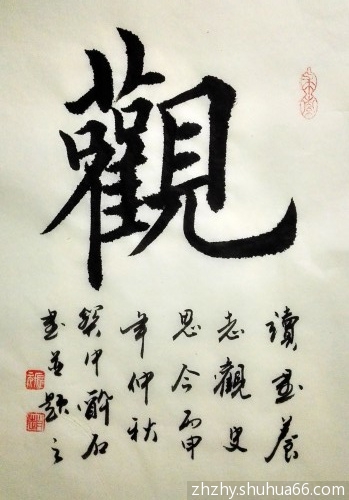 觀
讀書養
志觀史
思今丙申
年仲秋
醉石
書並題之
zhzhy.shuhua66.com